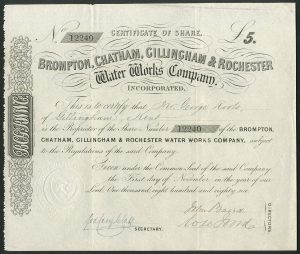 CERTIFICATE OF SHARE.
No 12240 £5.
BROMPTON, CHATHAM, GILLINGHAM & ROCHESTER
Water Works Company.
INCORPORATED.
This is to certify that Mr. George Roots
of Gillingham, Kent
is the Proprietor of the Share Number 12240 of the BROMPTON,
CHATHAM, GILLINGHAM & ROCHESTER WATER WORKS COMPANY, subject
to the Regulations of the said Company.
Given under the Common Seal of the said Company,
the First day of November in the year of our
Lord One thousand eight hundred and eighty six
John
SECRETARY.
DIRECTORS.